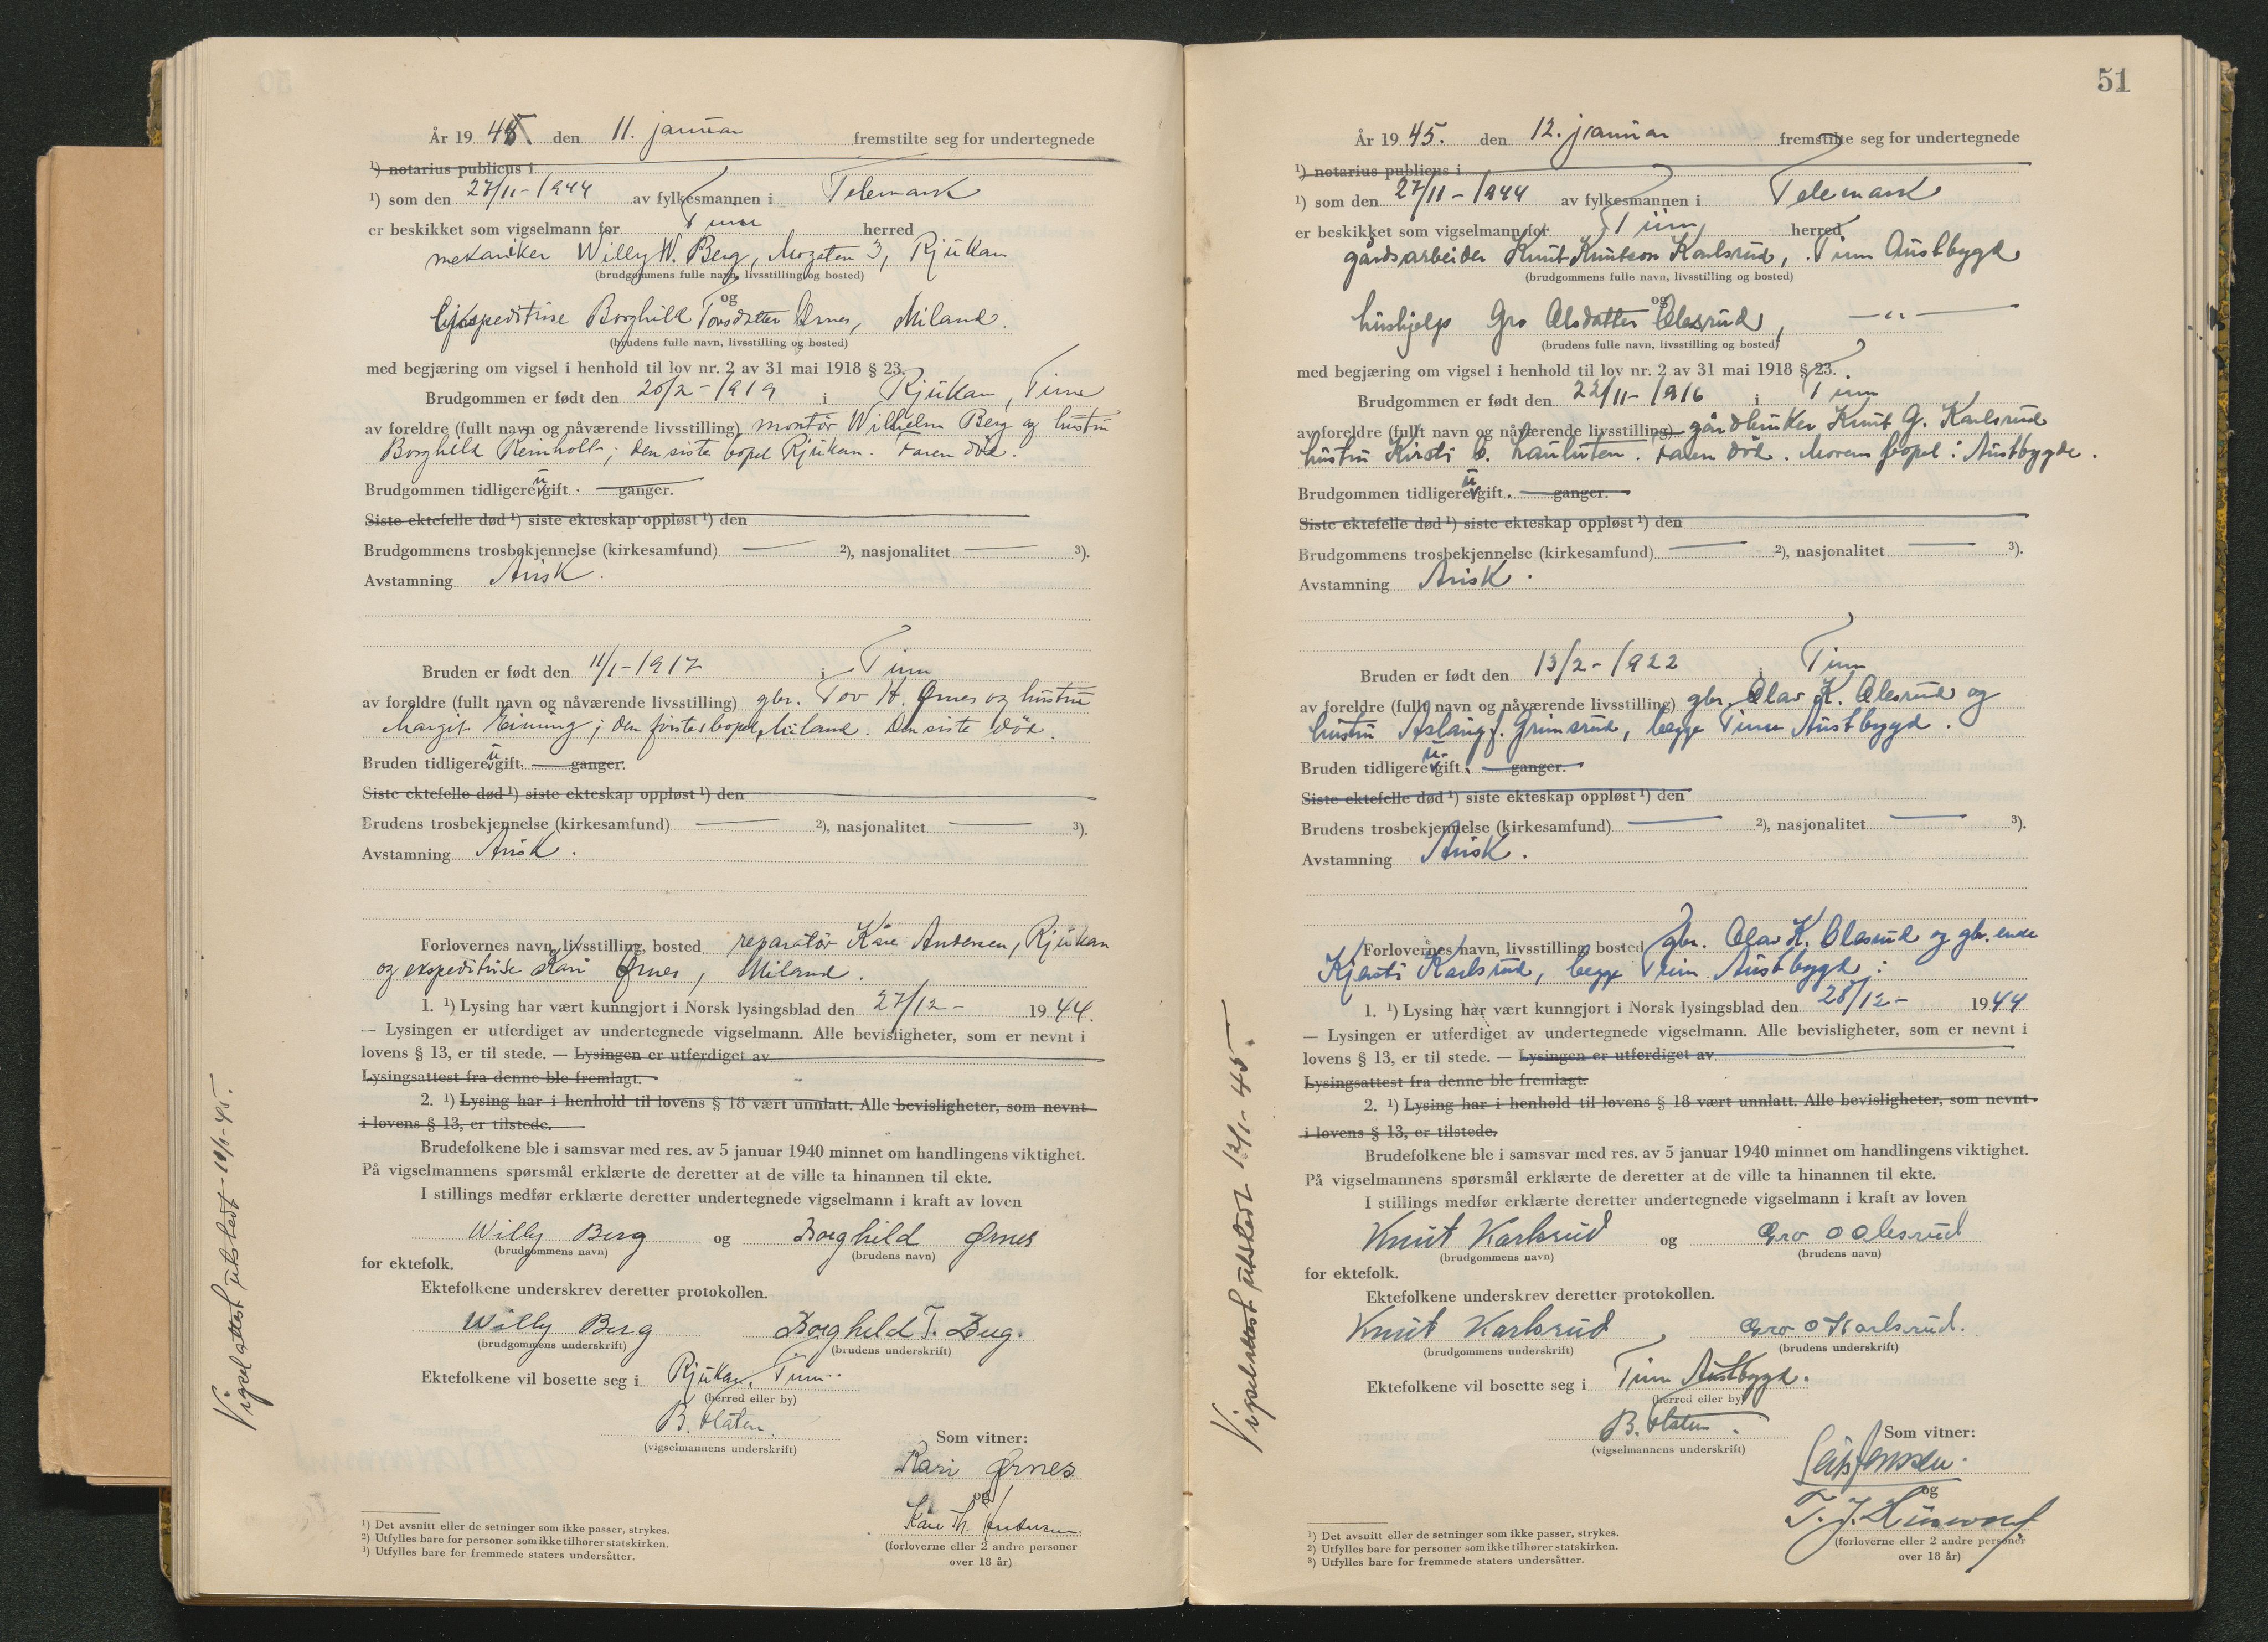 År 1945. den 11. januar fremstilte seg for undertegnede
¹) notarius publicus i
¹) som den 27/11-1944 av fylkesmannen i Telemark
er beskikket som vigselmann for Tinn herred
mekaniker Willy W. Berg, Mogaten 3, Rjukan
(brudgommens fulle navn, livsstilling og bosted)
og
Ekspeditrise Borghild Tovsdatter Ørnes, Miland.
(brudens fulle navn, livsstilling og bosted)
med begjæring om vigsel i henhold til lov nr. 2 av 31 mai 1918 § 23.
Brudgommen er født den 20/2-1919 i Rjukan, Tinn
av foreldre (fullt navn og nåværende livsstilling) montør Wilhelm Berg og hustru
Borghild Reinholt; den siste bopel Rjukan. Faren död.
Brudgommen tidligere ugift. ganger.
Siste ektefelle død ¹) siste ekteskap oppløst ¹) den
Brudgommens trosbekjennelse (kirkesamfund) — ²), nasjonalitet — ³).
Avstamning Arisk.
Bruden er født den 11/1-1917 i Tinn
av foreldre (fullt navn og nåværende livsstilling) gbr. Tov H. Ørnes og hustru
Margit Einung; den förstes bopel, Miland. Den siste död.
Bruden tidligere ugift. ganger.
Siste ektefelle død ¹) siste ekteskap oppløst ¹) den
Brudens trosbekjennelse (kirkesamfund) — ²), nasjonalitet — ³).
Avstamning Arisk.
Forlovernes navn, livsstilling, bosted reparatör Kåre Andersen, Rjukan
og ekspeditrise Kari Ørnes, Miland.
1. ¹) Lysing har vært kunngjort i Norsk lysingsblad den 27/12- 1944.
— Lysingen er utferdiget av undertegnede vigselmann. Alle bevisligheter, som er nevnt i
lovens § 13, er til stede. — Lysingen er utferdiget av
Lysingsattest fra denne ble fremlagt.
2. ¹) Lysing har i henhold til lovens § 18 vært unnlatt. Alle bevisligheter, som nevnt
i lovens § 13, er tilstede.
Brudefolkene ble i samsvar med res. av 5 januar 1940 minnet om handlingens viktighet.
På vigselmannens spørsmål erklærte de deretter at de ville ta hinannen til ekte.
I stillings medfør erklærte deretter undertegnede vigselmann i kraft av loven
Willy Berg og Borghild Ørnes
(brudgommens navn) (brudens navn)
for ektefolk.
Ektefolkene underskrev deretter protokollen.
Willy Berg Borghild T. Berg.
(brudgommens underskrift) (brudens underskrift)
Ektefolkene vil bosette seg i Rjukan, Tinn.
(herred eller by)
B. Haten.
(vigselmannens underskrift)
Som vitner:
Kari Ørnes
og
Kåre Th. Andersen.
(forloverne eller 2 andre personer
over 18 år)
¹) Det avsnitt eller de setninger som ikke passer, strykes.
²) Utfylles bare for personer som ikke tilhører statskirken.
³) Utfylles bare for fremmede staters undersåtter.
Vigselattest utstedt 11/1-45.
51
År 1945. den 12. januar fremstilte seg for undertegnede
¹) notarius publicus i
¹) som den 27/11-1944 av fylkesmannen i Telemark
er beskikket som vigselmann for Tinn herred
gårdsarbeider Knut Knutson Karlsrud, Tinn Austbygd
(brudgommens fulle navn, livsstilling og bosted)
og
hushjelp Gro Olsdatter Olesrud, —"—
(brudens fulle navn, livsstilling og bosted)
med begjæring om vigsel i henhold til lov nr. 2 av 31 mai 1918 § 23.
Brudgommen er født den 22/11-1916 i Tinn
av foreldre (fullt navn og nåværende livsstilling) gårdbruker Knut G. Karlsrud
hustru Kirsti Faren död. Morens bopel: Austbygde.
Brudgommen tidligere ugift. ganger.
Siste ektefelle død ¹) siste ekteskap oppløst ¹) den
Brudgommens trosbekjennelse (kirkesamfund) — ²), nasjonalitet — ³).
Avstamning Arisk.
Bruden er født den 13/2-1922 i Tinn
av foreldre (fullt navn og nåværende livsstilling) gbr. Olav K. Olesrud og
hustru Aslaug f. Grimsrud, begge Tinn Austbygd.
Bruden tidligere ugift. ganger.
Siste ektefelle død ¹) siste ekteskap oppløst ¹) den
Brudens trosbekjennelse (kirkesamfund) — ²), nasjonalitet — ³).
Avstamning Arisk.
Forlovernes navn, livsstilling, bosted gbr. Olav K. Olesrud og gbr. enke
Kjersti Karlsrud, begge Tinn Austbygd.
1. ¹) Lysing har vært kunngjort i Norsk lysingsblad den 28/12- 1944
— Lysingen er utferdiget av undertegnede vigselmann. Alle bevisligheter, som er nevnt i
lovens § 13, er til stede. — Lysingen er utferdiget av
Lysingsattest fra denne ble fremlagt.
2. ¹) Lysing har i henhold til lovens § 18 vært unnlatt. Alle bevisligheter, som nevnt
i lovens § 13, er tilstede.
Brudefolkene ble i samsvar med res. av 5 januar 1940 minnet om handlingens viktighet.
På vigselmannens spørsmål erklærte de deretter at de ville ta hinannen til ekte.
I stillings medfør erklærte deretter undertegnede vigselmann i kraft av loven
Knut Karlsrud og Gro O Olesrud
(brudgommens navn) (brudens navn)
for ektefolk.
Ektefolkene underskrev deretter protokollen.
Knut Karlsrud Gro O Karlsrud.
(brudgommens underskrift) (brudens underskrift)
Ektefolkene vil bosette seg i Tinn Austbygd.
(herred eller by)
B. Haten.
(vigselmannens underskrift)
Som vitner:
Jenssen.
og
T. J.
(forloverne eller 2 andre personer
over 18 år)
¹) Det avsnitt eller de setninger som ikke passer, strykes.
²) Utfylles bare for personer som ikke tilhører statskirken.
³) Utfylles bare for fremmede staters undersåtter.
Vigselattest utstedt 12/1-45.